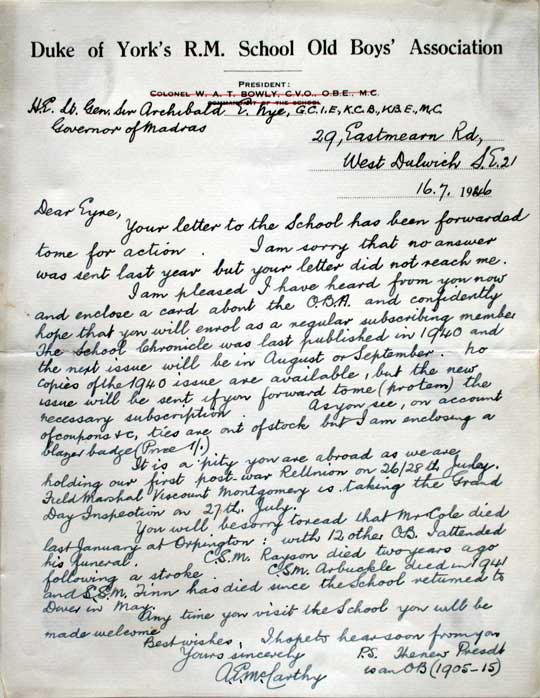 Duke of York's R.M. School Old Boys' Association
PRESIDENT:
COLONEL W. A. T. BOWLY, C.V.O., O.B.E., M.C.
COMMANDANT OF THE SCHOOL
H.E. Lt. Gen. Sir Archibald E. Nye, G.C.I.E, K.C.B, K.B.E, M.C,
Governor of Madras
29, Eastmearn Rd,
West Dulwich S.E.21
16.7.1946
Dear Eyre,
Your letter to the School has been forwarded
to me for action. I am sorry that no answer
was sent last year but your letter did not reach me.
I am pleased I have heard from you now
and enclose a card about the O.B.A. and confidently
hope that you will enrol as a regular subscribing member
The School Chronicle was last published in 1940 and
the next issue will be in August or September. No
copies of the 1940 issue are available, but the new
issue will be sent if you forward to me (pro tem) the
necessary subscription. As you see, on account
of coupons &c, ties are out of stock but I am enclosing a
blazer badge (Price 7/.)
It is a pity you are abroad as we are
holding our first post-war ReUnion on 26/28th July.
Field Marshal Viscount Montgomery is taking the Grand
Day Inspection on 27th July.
You will be sorry to read that Mr Cole died
last January at Orpington: with 12 other O.B. I attended
his funeral. C.S.M. Rayson died two years ago
following a stroke. C.S.M. Arbuckle died in 1941
and S.S.M. Finn has died since the School returned to
Dover in May.
Any time you visit the School you will be
made welcome
Best wishes, I hope to hear soon from you
Yours sincerely P.S. The new Presdt
A.E. McCarthy is an OB (1905-15)